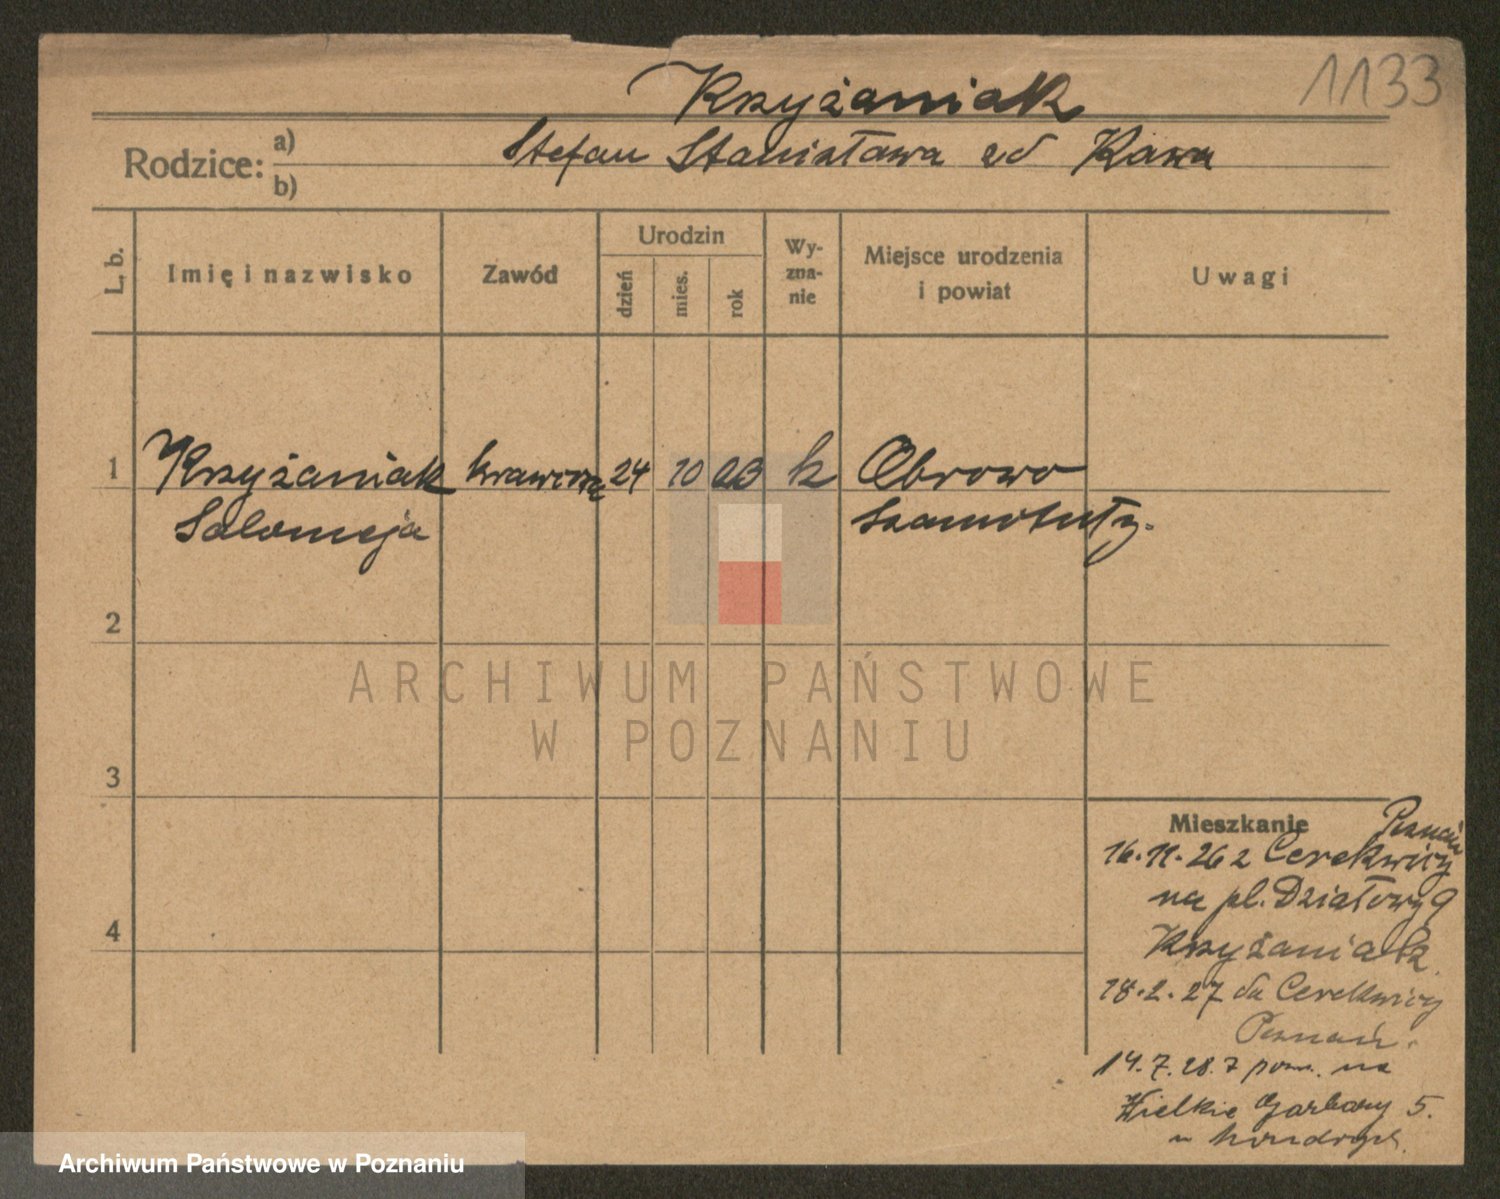 1133
Krzyżaniak
Rodzice: a) Stefan Stanisława zd Kawa
b)
L. b.
Imię i nazwisko
Zawód
Urodzin
dzień
mies.
rok
Wy-
zna-
nie
Miejsce urodzenia
i powiat
Uwagi
1 Krzyżaniak krawcowa 24 10 03 k Obrowo
Salomeja Szamotuły.
2
ARCHIWUM PAŃSTWOWE
W POZNANIU
3
4
Mieszkanie Poznań
16.11.26 z Cerekwicy
na pl. Działowy 9
Krzyżaniak
18.2.27 do Cerekwicy
Poznań.
14.7.28. z pozn. na
Wielkie Garbary 5.
Archiwum Państwowe w Poznaniu